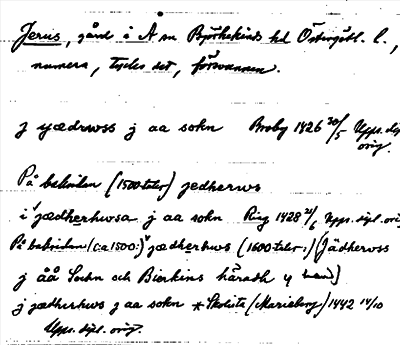 Jerus, gård i Å sn Björkekinds hd Östergötl. l.,
numera, tycks det, försvunnen.
j yædrwss j aa sokn Broby 1426 30/5 Upps. dipl.
orig.
På baksidan (1500-talet) jedherws
i jædherhwsa j aa sokn Ring 1428 21/6 Upps. dipl. orig.
På baksidan (c:a 1500:) jædherhws (1600-talet:) (Jädherwss
j åå Sochn och Bierkins häradh
j jædherhws j aa sokn * Skolista (Marieberg) 1442 14/10
Upps. dipl. orig.